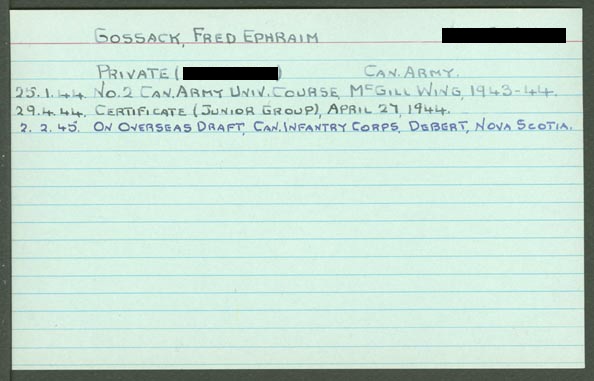 GOSSACK, FRED EPHRAIM
PRIVATE ( ) CAN. ARMY.
25.1.44. NO.2 CAN. ARMY UNIV. COURSE, MCGILL WING, 1943-44.
29.4.44. CERTIFICATE (JUNIOR GROUP), APRIL 27, 1944.
2.2.45. ON OVERSEAS DRAFT, CAN. INFANTRY CORPS, DEBERT, NOVA SCOTIA.